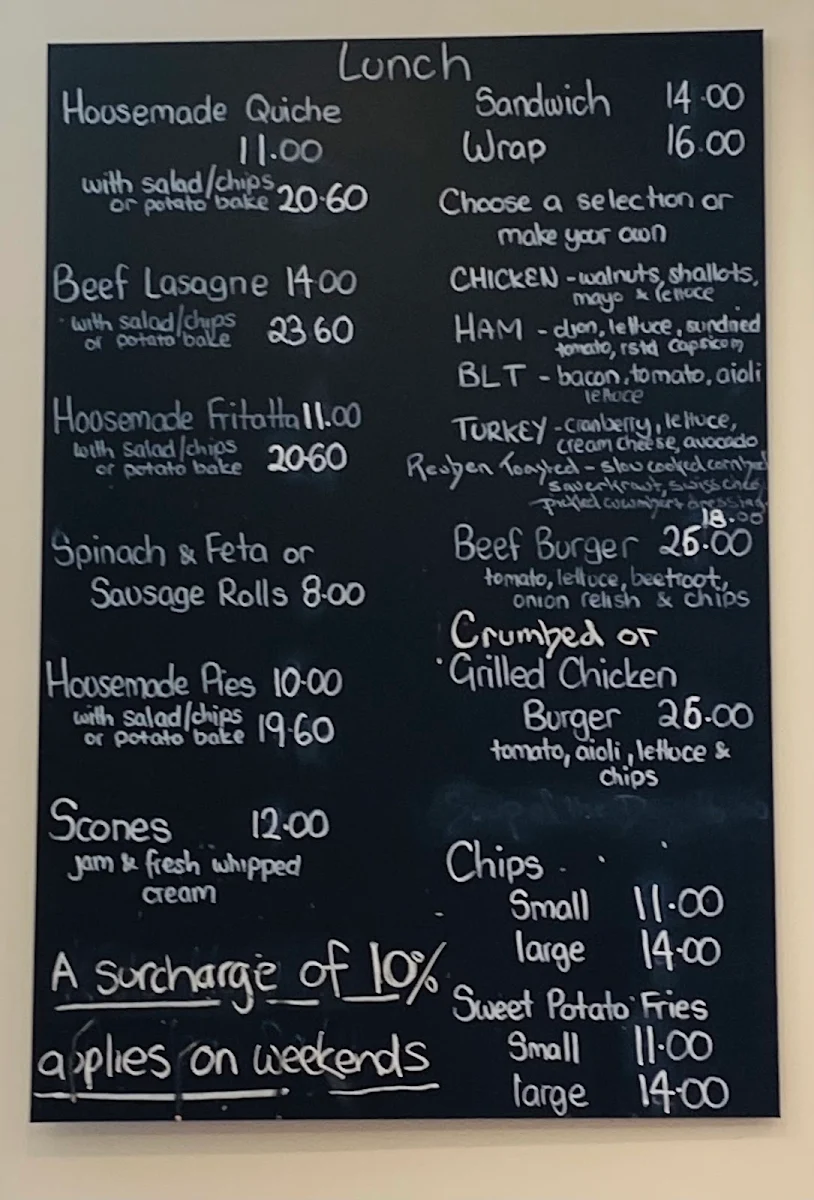 Lunch
Housemade Quiche
11.00
with salad/chips
or potato bake 20.60
Beef Lasagne 14.00
with salad/chips
or potato bake 23.60
Housemade Fritatta 11.00
with salad/chips
or potato bake 20.60
Spinach & Feta or
Sausage Rolls 8.00
Housemade Pies 10.00
with salad/chips
or potato bake 19.60
Scones 12.00
jam & fresh whipped
cream
A surcharge of 10%
applies on weekends
Sandwich 14.00
Wrap 16.00
Choose a selection or
make your own
CHICKEN - walnuts, shallots,
mayo & lettuce
HAM - dijon, lettuce, sundried
tomato, rstd capsicum
BLT - bacon, tomato, aioli
lettuce
TURKEY - cranberry, lettuce,
cream cheese, avocado
Reuben Toasted - slow cooked
sauerkraut, swiss
pickled
18.00
Beef Burger 26.00
tomato, lettuce, beetroot,
onion relish & chips
Crumbed or
Grilled Chicken
Burger 26.00
tomato, aioli, lettuce &
chips
Chips
Small 11.00
large 14.00
Sweet Potato Fries
Small 11.00
large 14.00